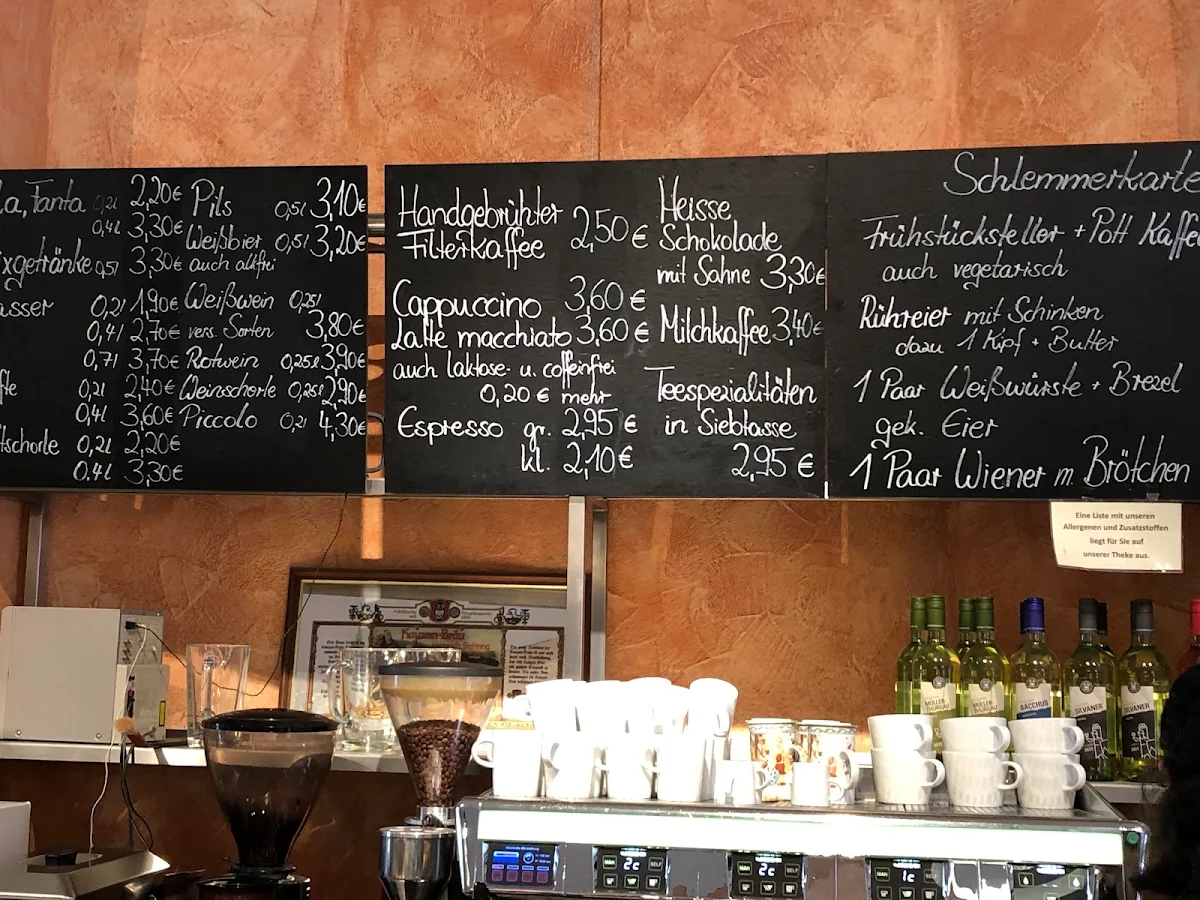 la, Fanta 0,2l 2,20€
0,4l 3,30€
ixgetränke 0,5l 3,30€
asser 0,2l 1,90€
0,4l 2,70€
0,7l 3,70€
fte 0,2l 2,40€
0,4l 3,60€
ftschorle 0,2l 2,20€
0,4l 3,30€
Pils 0,5l 3,10€
Weißbier 0,5l 3,20€
auch alkfrei
Weißwein 0,25l
vers. Sorten 3,80€
Rotwein 0,25l 3,90€
Weinschorle 0,25l 2,90€
Piccolo 0,2l 4,30€
Handgebrühter
Filterkaffee 2,50€
Cappuccino 3,60€
Latte macchiato 3,60€
auch laktose- u. coffeinfrei
0,20€ mehr
Espresso gr. 2,95€
kl. 2,10€
Heisse
Schokolade
mit Sahne 3,30€
Milchkaffee 3,40€
Teespezialitäten
in Siebtasse
2,95€
Schlemmerkarte
Frühstücksteller + Pott Kaffe
auch vegetarisch
Rühreier mit Schinken
dazu 1 Kipf + Butter
1 Paar Weißwürste + Brezel
gek. Eier
1 Paar Wiener m. Brötchen
Eine Liste mit unseren
Allergenen und Zusatzstoffen
liegt für Sie auf
unserer Theke aus.
Kaizen-Bräu
MÜLLER
THURGAU
MÜLLER
THURGAU
BACCHUS
SILVANER
SILVANER
MAN 2c SELF
2c SELF
MAN 1c